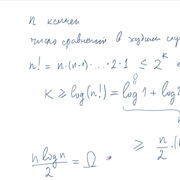 n ключей
число сравнений в худшем слу
n! = n·(n-1)·...·2·1 ≤ 2^k
0
k ≥ log(n!) = log 1 + log 2
≥ n/2 ·
n log n / 2 = Ω